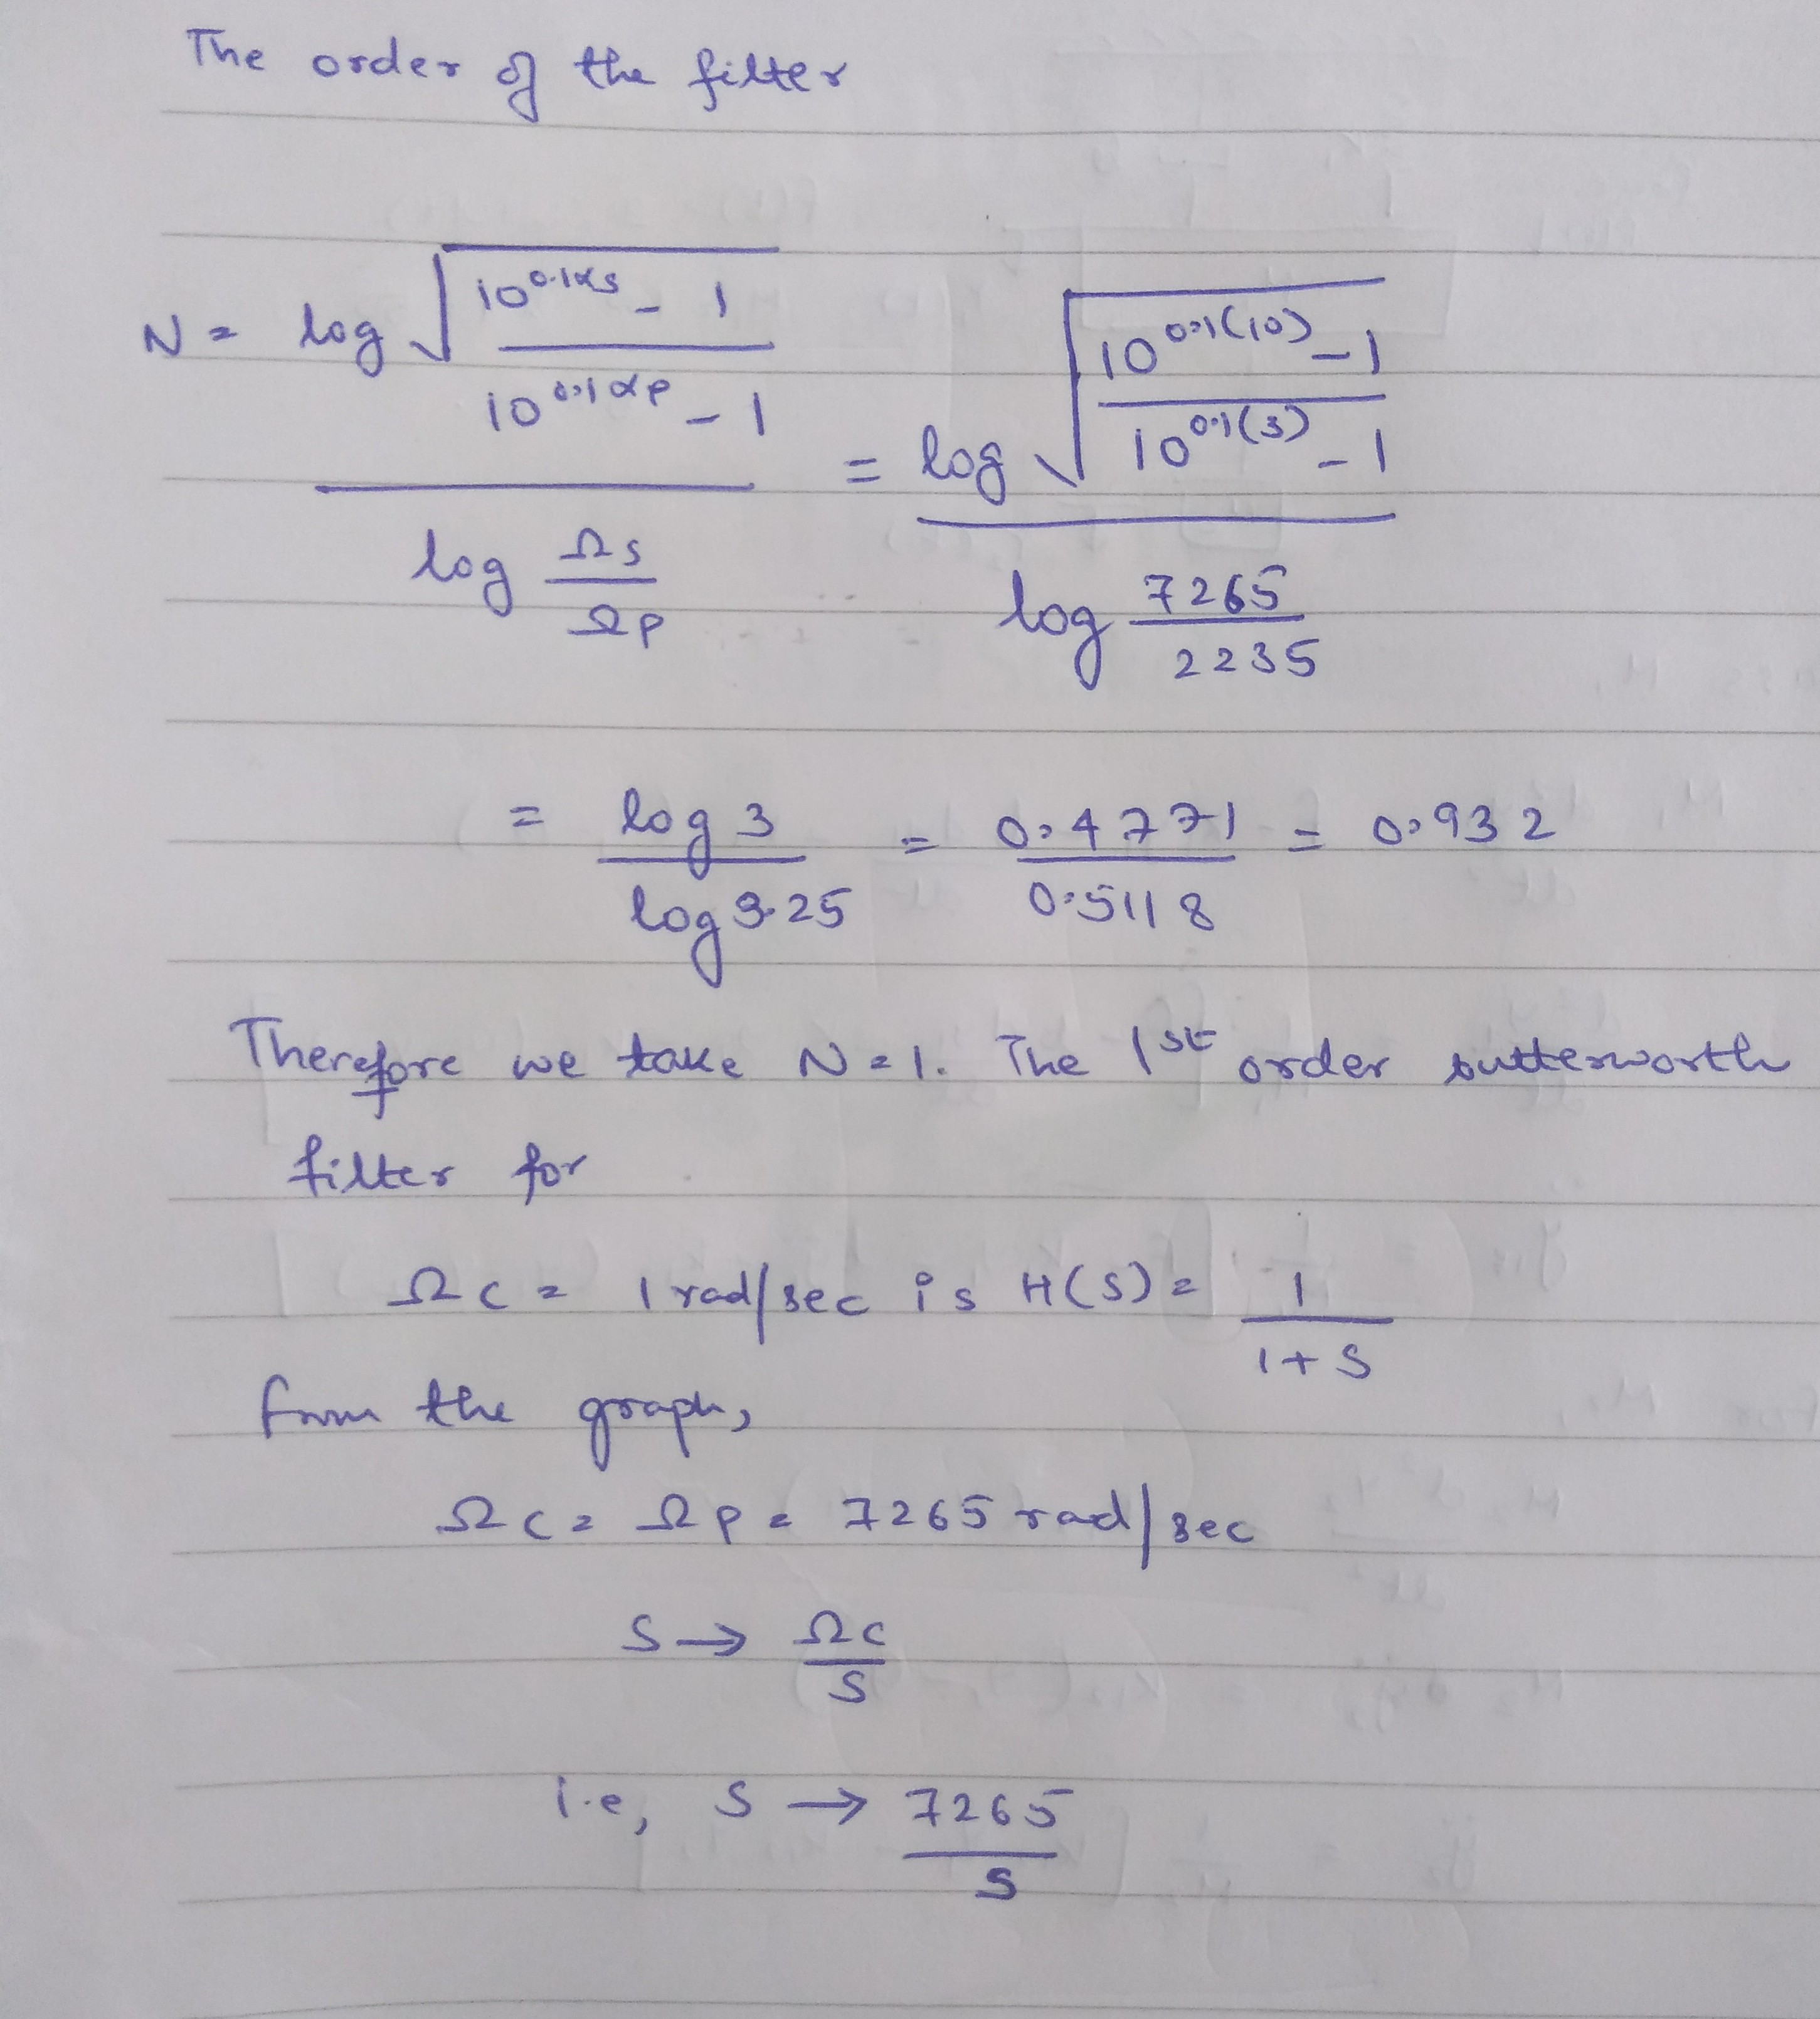 The order of the filter
N = log √(10^0.1αs - 1 / 10^0.1αp - 1) / log Ωs/Ωp = log √(10^0.1(10) - 1 / 10^0.1(3) - 1) / log 7265/2235
= log 3 / log 3.25 = 0.4771 / 0.5118 = 0.932
Therefore we take N = 1. The 1st order butterworth
filter for
Ωc = 1 rad/sec is H(S) = 1 / 1+S
from the graph,
Ωc = Ωp = 7265 rad/sec
S → Ωc / S
i.e, S → 7265 / S